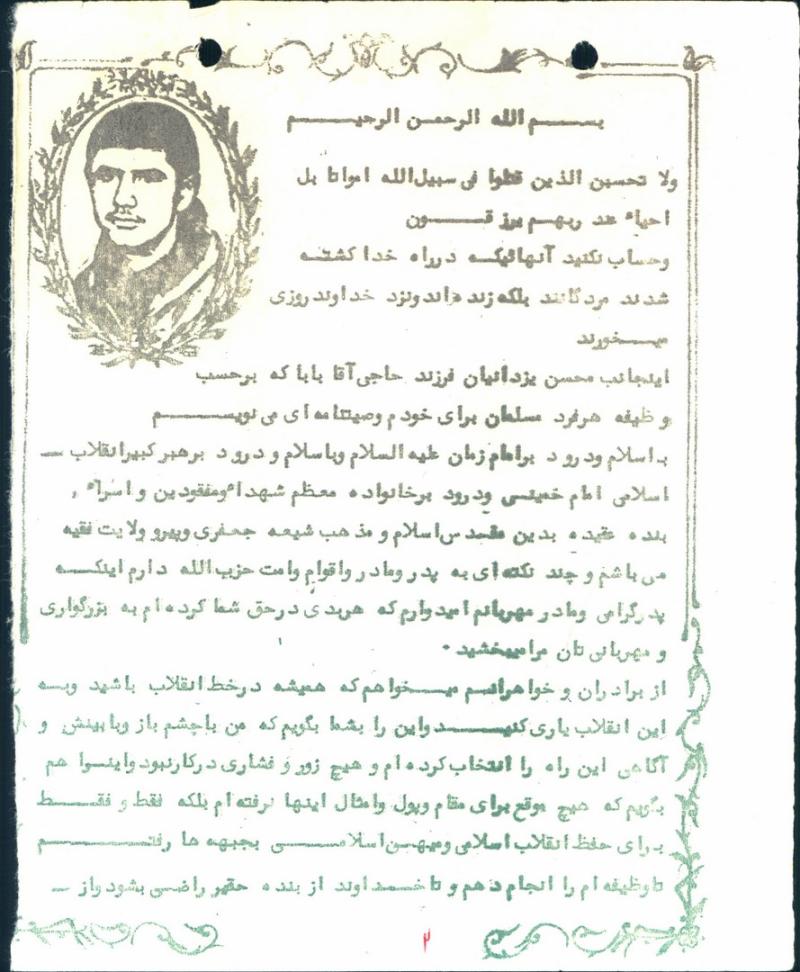 بسم الله الرحمن الرحیم
ولا تحسبن الذین قتلوا فی سبیل‌الله امواتا بل
احیاء عند ربهم یرزقون
وحساب نکنید آنهائیکه درراه خدا کشته
شدند مردگانند بلکه زنده‌اند ونزد خداوند روزی
میخورند
اینجانب محسن یزدانیان فرزند حاجی آقا بابا که برحسب
وظیفه هرفرد مسلمان برای خودم وصیتنامه‌ای می‌نویسم
باسلام ودرود برامام زمان علیه السلام وباسلام و درود برهبر کبیرانقلاب ـ
اسلامی امام خمینی ودرود برخانواده معظم شهداء ومفقودین و اسراء ,
بنده عقیده بدین مقدس اسلام و مذهب شیعه جعفری وپیرو ولایت فقیه
می باشم و چند نکته‌ای به پدر ومادر واقوام وامت حزب الله دارم اینکه
پدرگرامی ومادر مهربانم امیدوارم که هربدی درحق شما کرده‌ام به بزرگواری
و مهربانی تان مرا میبخشید ۰
از برادران و خواهرانم میخواهم که همیشه درخط انقلاب باشید وبه
این انقلاب یاری کنید واین را بشما بگویم که من باچشم باز وبابینش و
آگاهی این راه را انتخاب کرده‌ام و هیچ زور و فشاری درکارنبود واینرا هم
بگویم که هیچ موقع برای مقام وپول وامثال اینها نرفته‌ام بلکه فقط و فقط
برای حفظ انقلاب اسلامی ومیهن اسلامی بجبهه ها رفتم
تاوظیفه‌ام را انجام دهم و تا خداوند از بنده حقیر راضی بشود واز ـ
۲